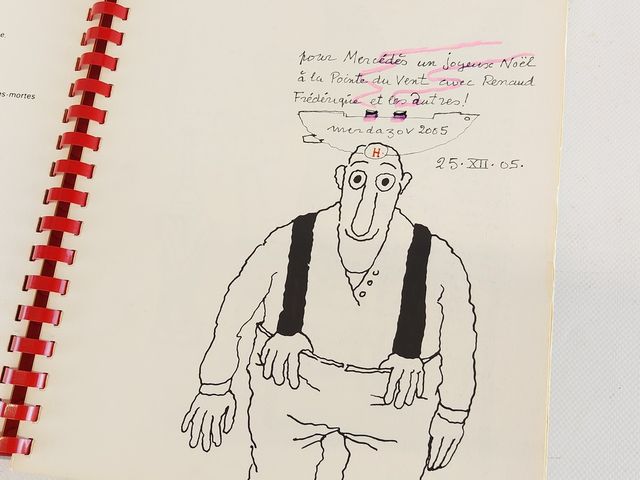 e.
es-mortes
pour Mercédès un joyeux Noël
à la Pointe du Vent avec Renaud
Frédérique et les autres!
merdazov 2005
25·XII·05.
H